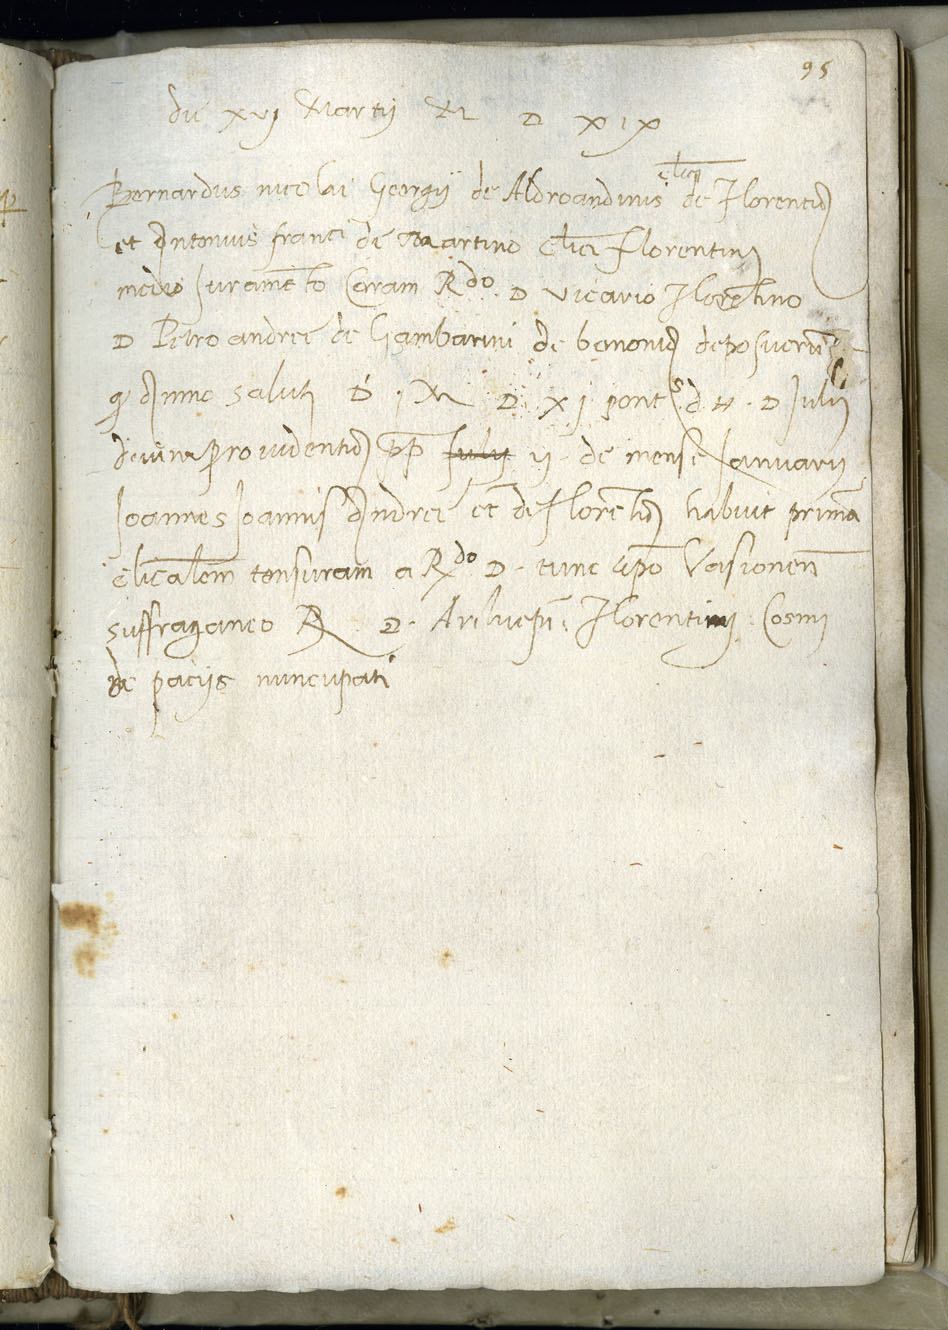 95
die xvj Martij M D XIX
cl̄icꝰ
Bernardus nicolai Georgij de Aldroandinis de Florentia
et Antonius franci de Martino cl̄ici florentini
medio Juramēto Coram Rdo D Vicario Florētino
D Petro andree de Gambarini de bononia deposuerūt
q̄ Anno saluti D. M D XI pontˢ d. n. D Julij
diuina prouidentia pp Julij ij de mense Januarij
Joannes Joannis Andree et de Florētia habuit primā
cl̄icalem tonsuram a Rdo D. tunc ep̄o Vasionen̄
suffraganeo R D. Archiep̄i Florentini Cosmi
de pacijs nuncupati